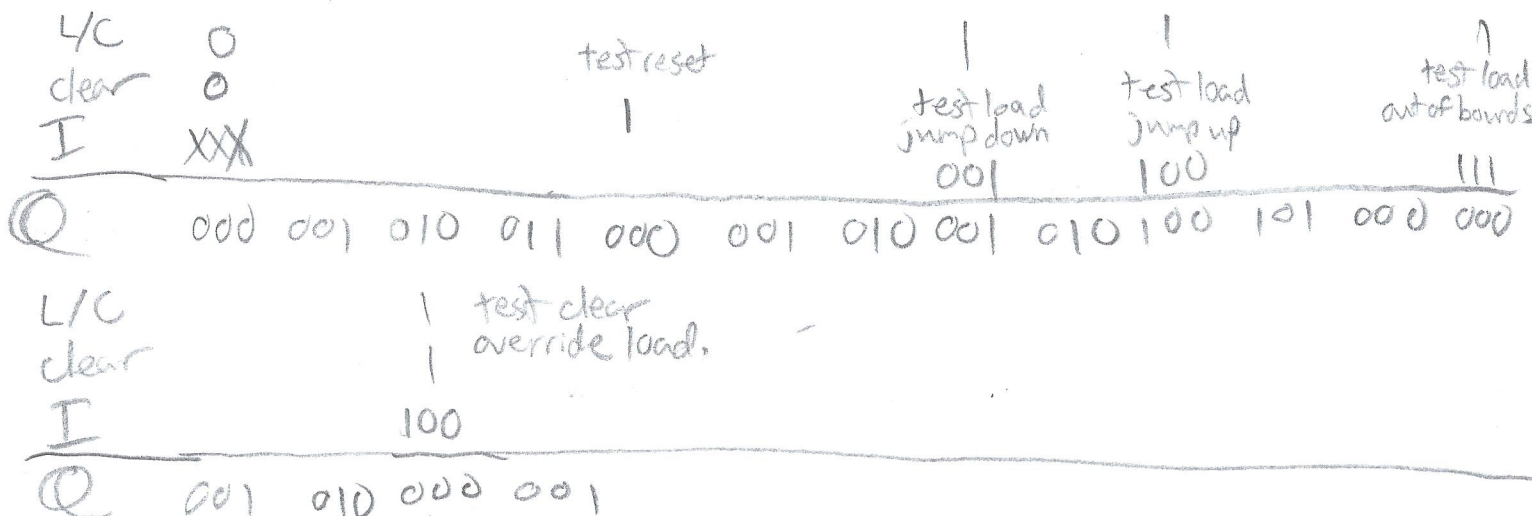 L/C 0 1 1 1
clear 0 test reset 1 test load jump down test load jump up test load out of bounds
I XXX 001 100 111
Q 000 001 010 011 000 001 010 001 010 100 101 000 000
L/C 1 test clear
clear 1 override load.
I 100
Q 001 010 000 001